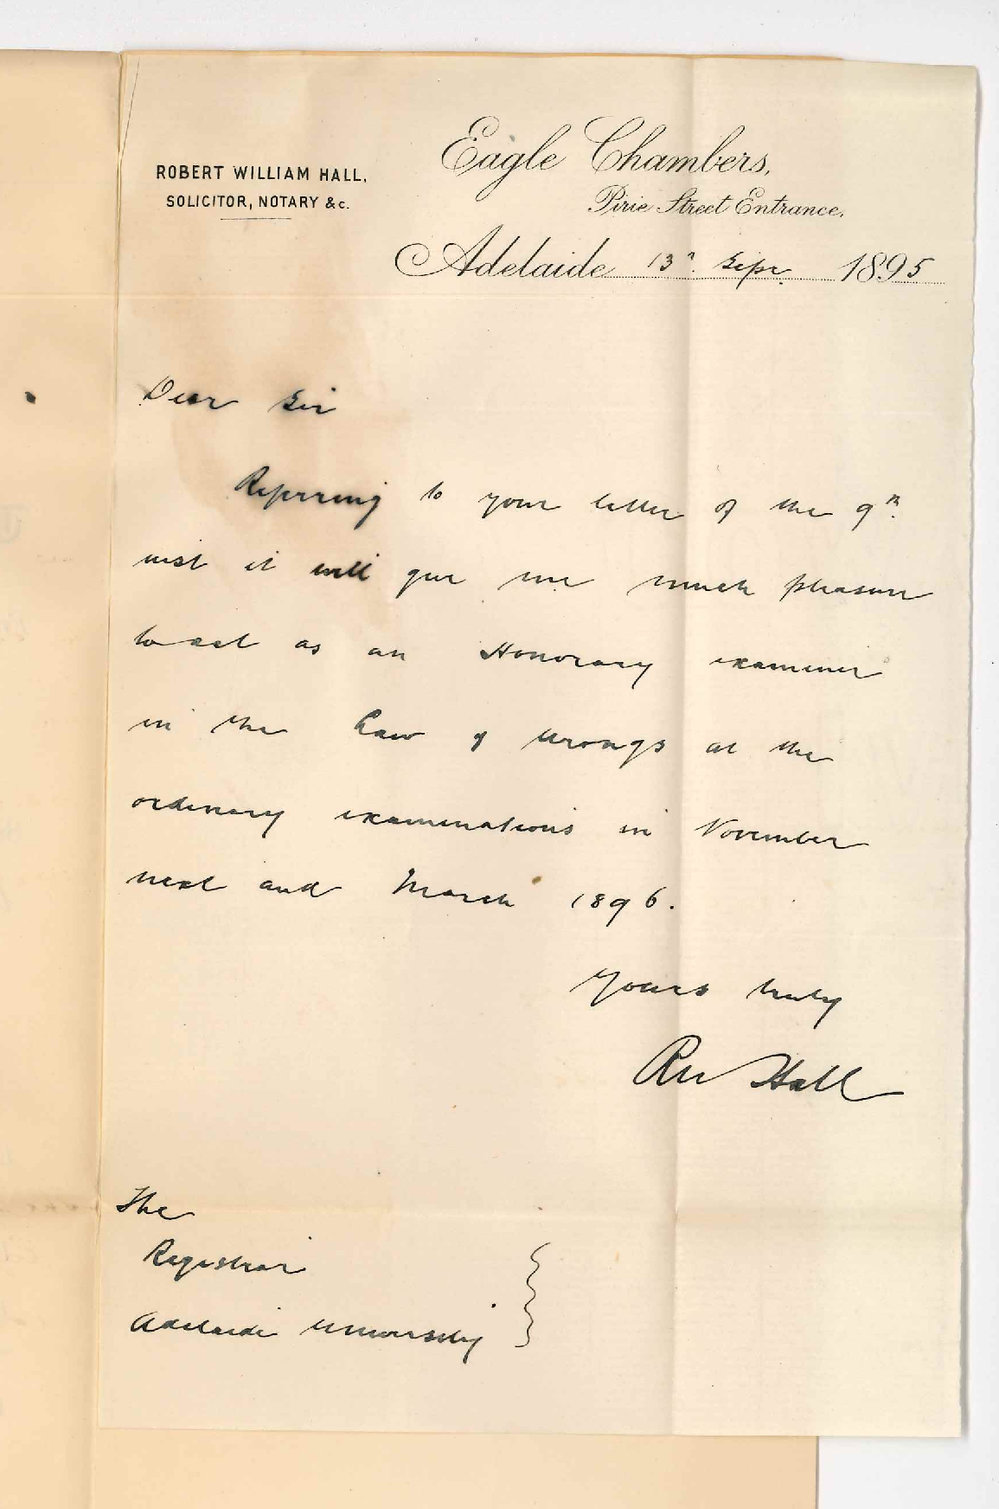 ROBERT WILLIAM HALL.
SOLICITOR, NOTARY &c.
Eagle Chambers,
Pirie Street Entrance.
Adelaide 13th Sepr. 1895
Dear Sir
Referring to your letter of the 9th.
inst it will give me much pleasure
to act as an Honorary examiner
in the Law of Wrongs at the
ordinary examinations in November
next and March 1896.
Yours truly
RW Hall
The
Registrar
Adelaide University